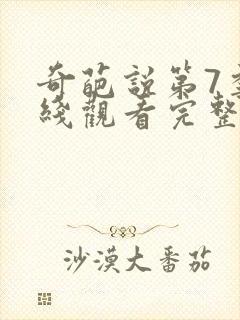 奇葩説第7季
綫觀看完整
沙漠大番茄